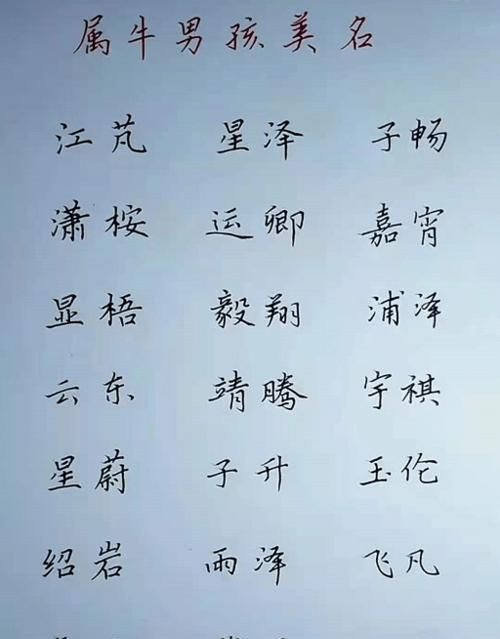 属牛男孩美名
江芃 星泽 子畅
潇桉 运卿 嘉宵
显梧 毅翔 浦泽
云东 靖腾 宇祺
星蔚 子升 玉伦
绍岩 雨泽 飞凡